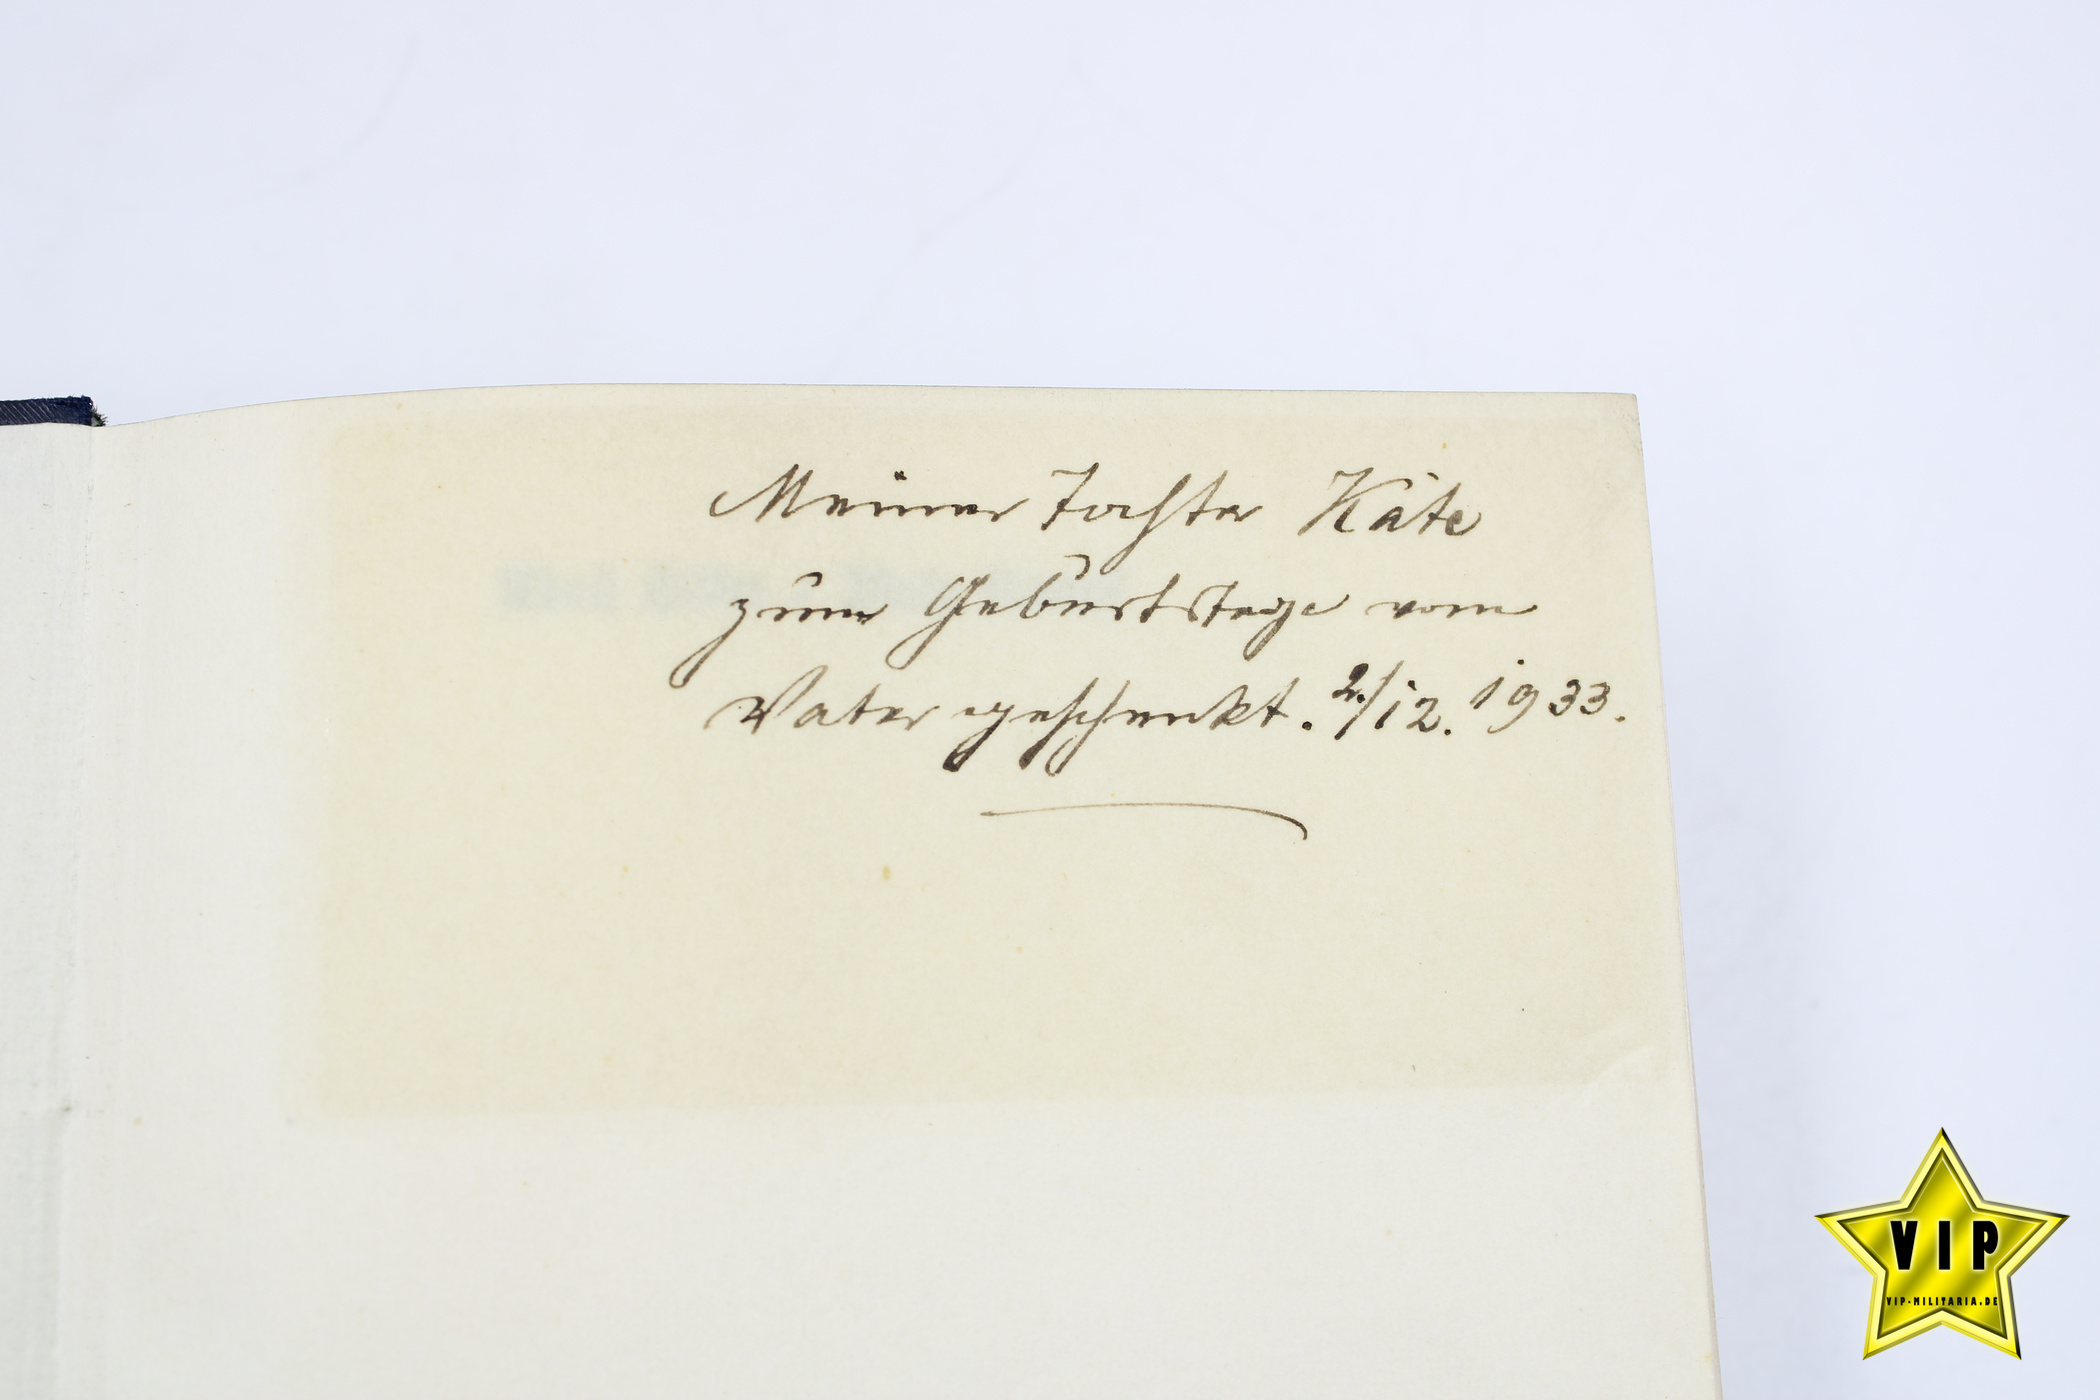 Meiner Tochter Käte
zum Geburtstage vom
Vater geschenkt. 2./12. 1933.
VIP
VIP-MILITARIA.DE